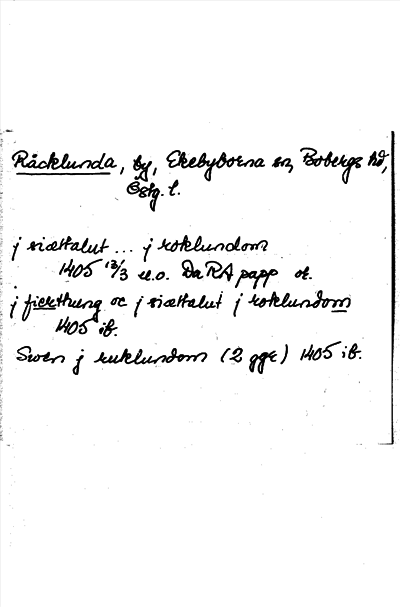 Råcklunda, by, Ekebyborna sn, Bobergs hd,
Östg. l.
j siættalut ... j roklundom
1405 12/3 u.o. DaRA papp or.
j fierthung oc j siættalut j roklundom
1405 ib.
Swen j ruklundom (2 ggr) 1405 ib.